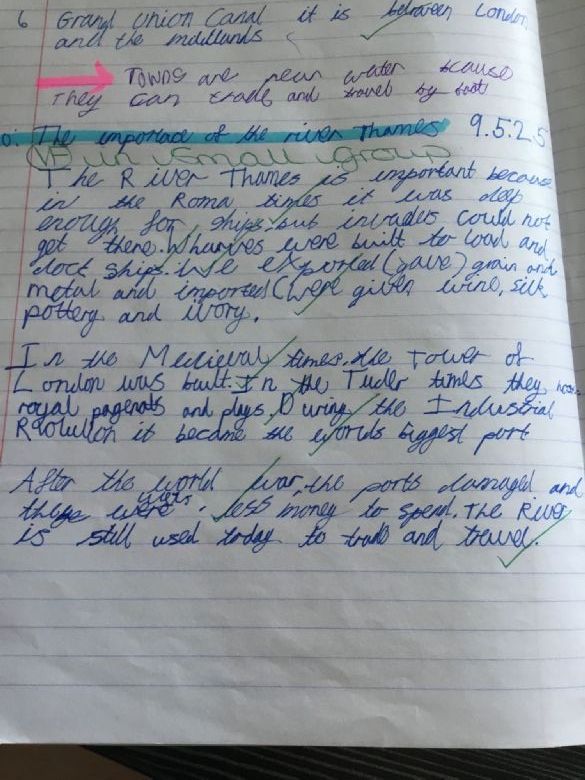 6 Grand Union Canal it is between London
and the midlands
Towns are near water because
They can trade and travel by boat
The importace of the river Thames 9.5.25
VF in small group
The River Thames is important because
in the Roma times it was deep
enough for ships, but invaders could not
get there. Wharves were built to load and
dock ships. We exported (gave) grain and
metal and imported (were given wine, silk
pottery and ivory.
In the Medieval times. the Tower of
London was built. In the Tuder times they
royal pagenats and plays During the Industrial
Revolution it became the worlds biggest port
After the world war, the ports damaged and
there were less money to spend. The River
is still used today to trade and travel.